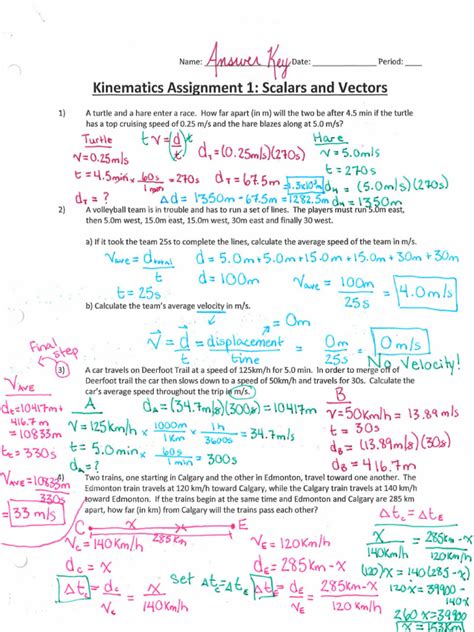 Name: Answer Key Date: Period:
Kinematics Assignment 1: Scalars and Vectors
1) A turtle and a hare enter a race. How far apart (in m) will the two be after 4.5 min if the turtle
has a top cruising speed of 0.25 m/s and the hare blazes along at 5.0 m/s?
Turtle
Hare
v = 0.25 m/s
t = 4.5 min x 60s / 1 min = 270s
d_T = ?
t v = (d/t) t
d_T = (0.25 m/s)(270s)
d_T = 67.5 m
v = 5.0 m/s
t = 270s
d_H = (5.0 m/s)(270s)
d_H = 1350 m
Δd = 1350m - 67.5m = 1282.5m
1.3x10³m
2) A volleyball team is in trouble and has to run a set of lines. The players must run 5.0m east,
then 5.0m west, 15.0m east, 15.0m west, 30m east and finally 30 west.
a) If it took the team 25s to complete the lines, calculate the average speed of the team in m/s.
V_AVE = d_total / t
d = 5.0m + 5.0m + 15.0m + 15.0m + 30m + 30m
d = 100m
t = 25s
V_AVE = 100m / 25s = 4.0 m/s
b) Calculate the team's average velocity in m/s.
v = d / t = displacement / time = 0m / 25s = 0 m/s
= 0m
No Velocity!
3) A car travels on Deerfoot Trail at a speed of 125km/h for 5.0 min. In order to merge off of
Deerfoot trail the car then slows down to a speed of 50km/h and travels for 30s. Calculate the
car's average speed throughout the trip in m/s.
A
v = 125 km/h x 1000m / 1 Km x 1h / 3600s = 34.7 m/s
t = 5.0 min x 60s / 1 min = 300s
d_A = ?
d_A = (34.7 m/s)(300s) = 10417m
B
v = 50 Km/h = 13.89 m/s
t = 30s
d_B = (13.89 m/s)(30s)
d_B = 416.7m
Final step
V_AVE
d_t = 10417m + 416.7m
= 10833m
t = 330s
V_AVE = 10833m / 330s
= 33 m/s
4) Two trains, one starting in Calgary and the other in Edmonton, travel toward one another. The
Edmonton train travels at 120 km/h toward Calgary, while the Calgary train travels at 140 km/h
toward Edmonton. If the trains begin at the same time and Edmonton and Calgary are 285 km
apart, how far (in km) from Calgary will the trains pass each other?
C
E
x
285km - x
V_C = 140 km/h
d_C = x
Δt_C = x / 140 Km/h
set Δt_C = Δt_E
V_E = 120 Km/h
d_E = 285Km - x
Δt_E = 285km - x / 120 Km/h
Δt_C = Δt_E
x / 140 Km/h = 285km - x / 120 Km/h
(120)x = 140(285 - x)
120x = 39900 - 140x
260x = 39900
x = 153Km